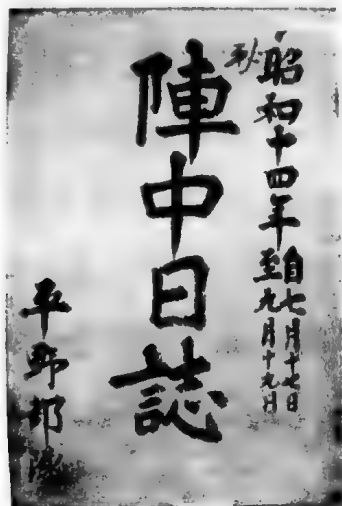 秘
昭和十四年自七月十七日
至九月十九日
陣中日誌
平野部隊